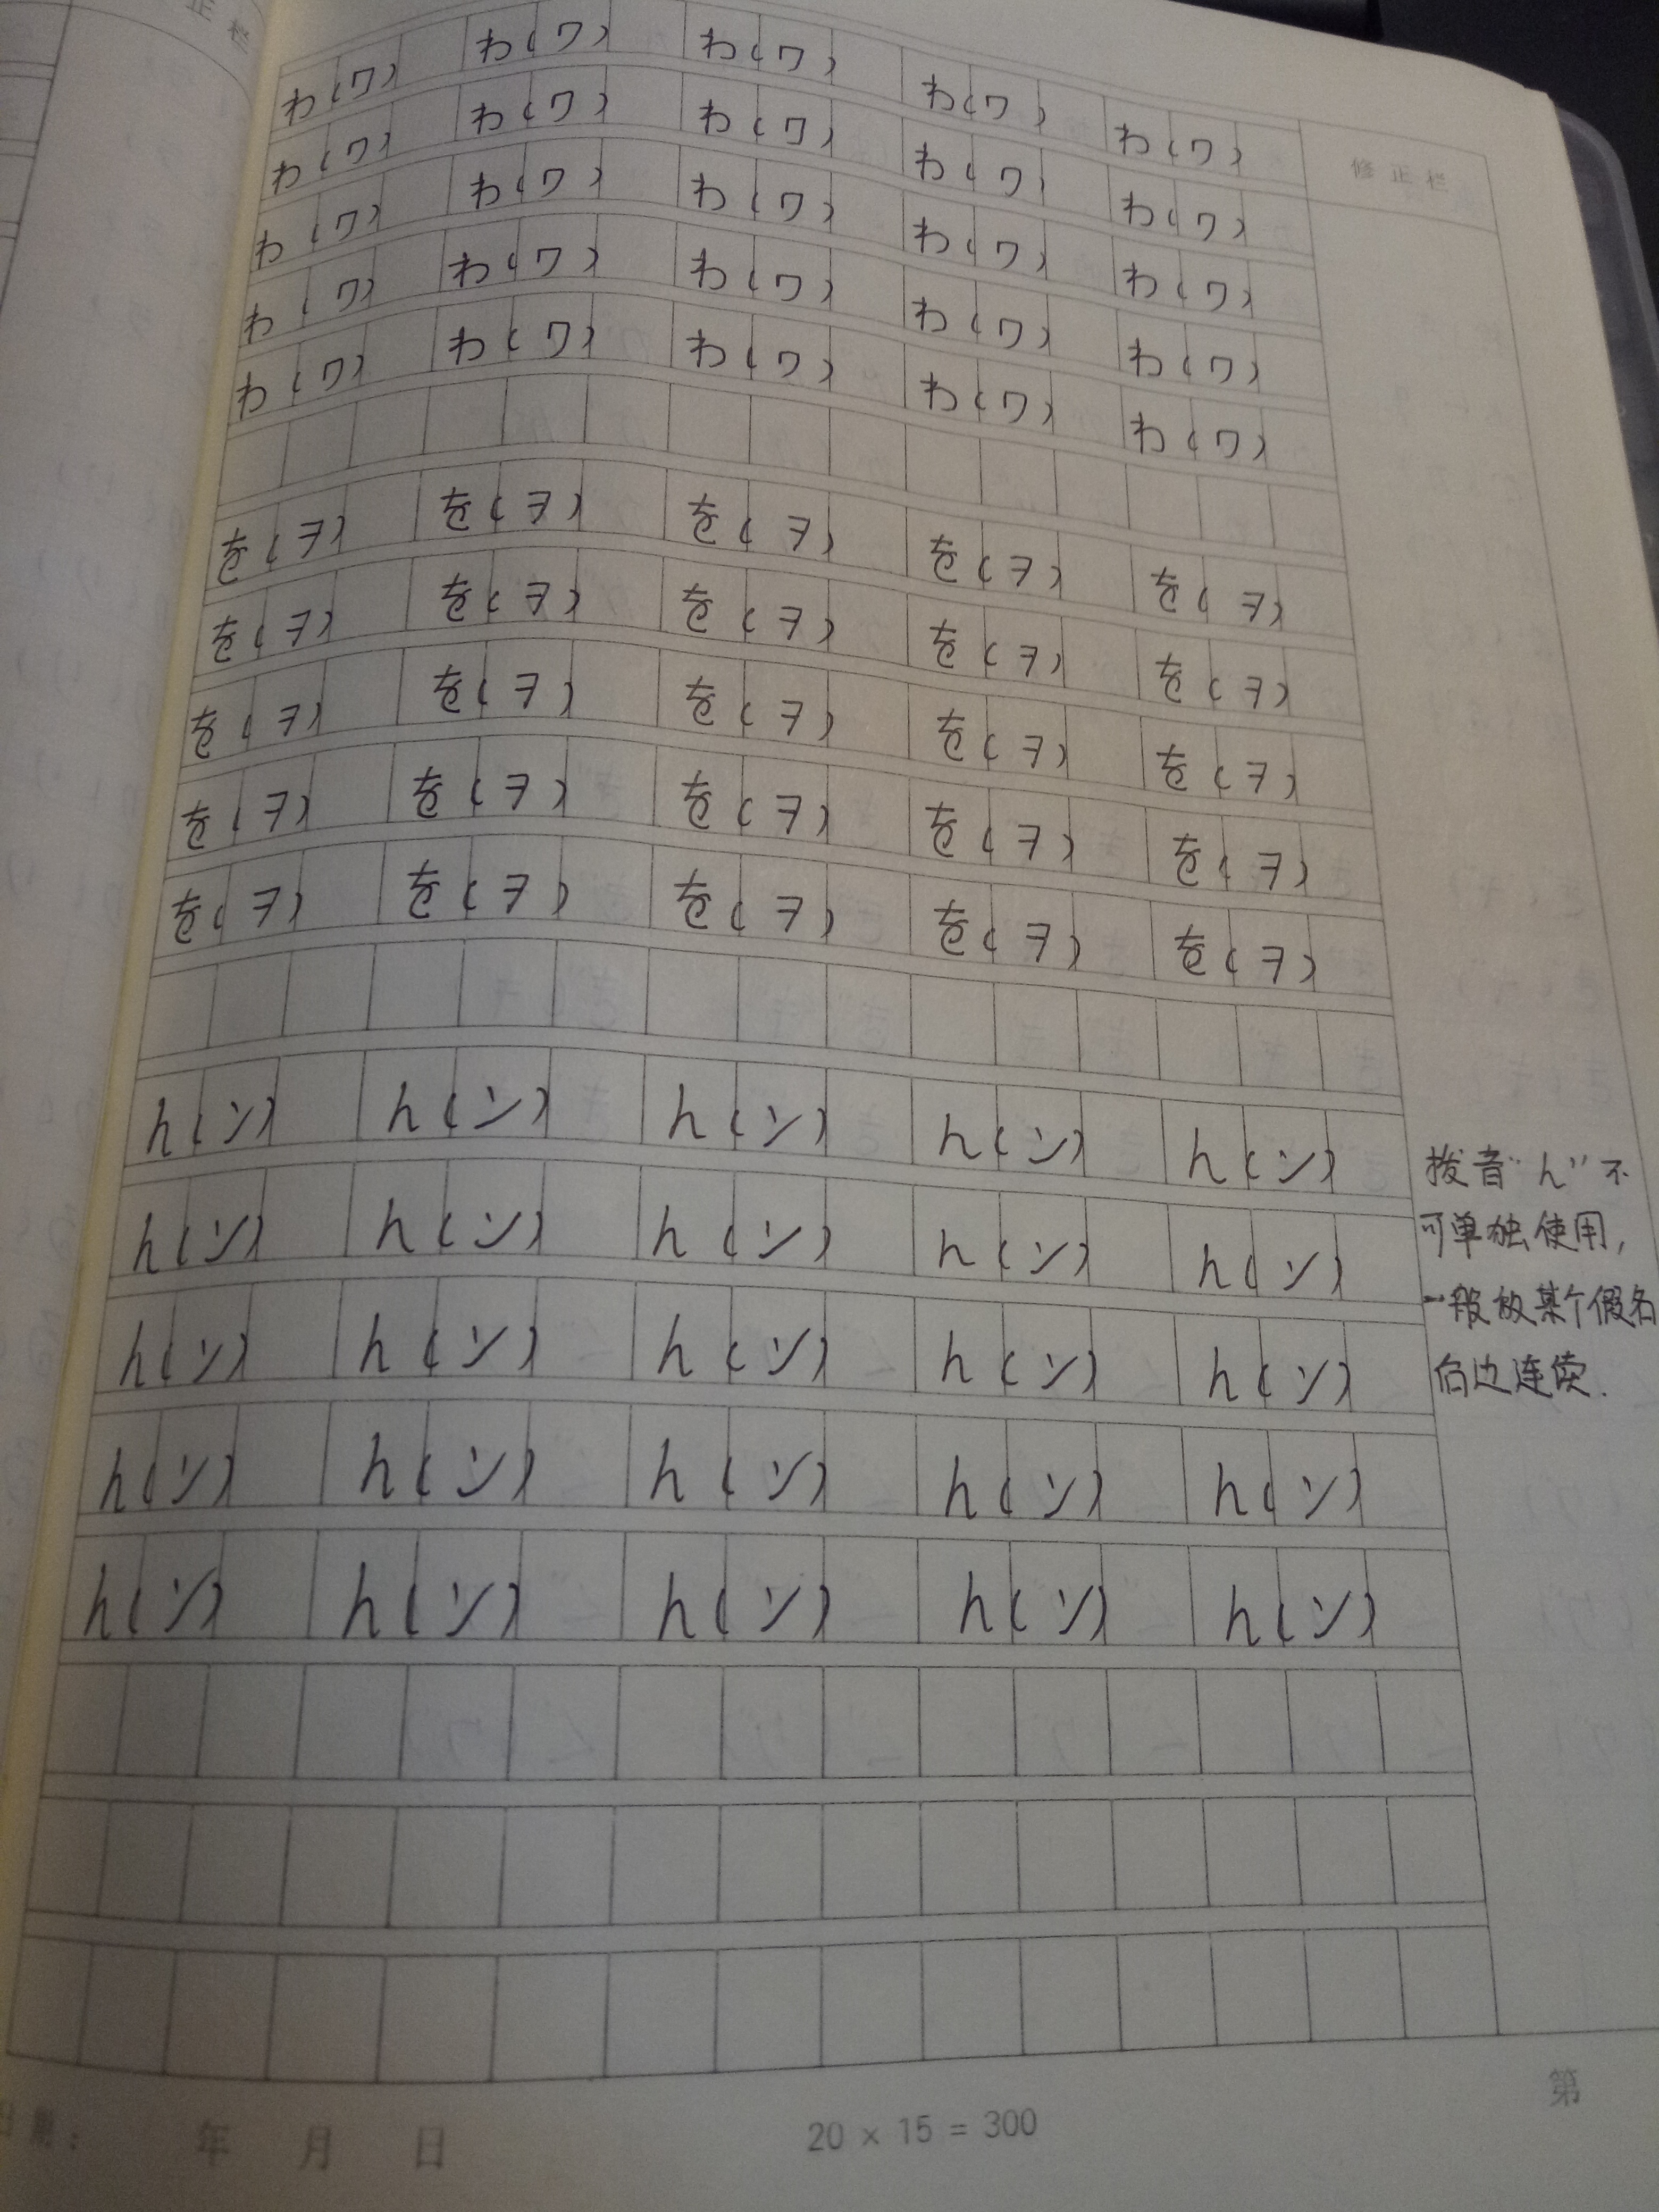 正栏
わ(ワ) わ(ワ) わ(ワ) わ(ワ) わ(ワ)
修正栏
わ(ワ) わ(ワ) わ(ワ) わ(ワ) わ(ワ)
わ(ワ) わ(ワ) わ(ワ) わ(ワ) わ(ワ)
わ(ワ) わ(ワ) わ(ワ) わ(ワ) わ(ワ)
わ(ワ) わ(ワ) わ(ワ) わ(ワ) わ(ワ)
を(ヲ) を(ヲ) を(ヲ) を(ヲ) を(ヲ)
を(ヲ) を(ヲ) を(ヲ) を(ヲ) を(ヲ)
を(ヲ) を(ヲ) を(ヲ) を(ヲ) を(ヲ)
を(ヲ) を(ヲ) を(ヲ) を(ヲ) を(ヲ)
を(ヲ) を(ヲ) を(ヲ) を(ヲ) を(ヲ)
ん(ン) ん(ン) ん(ン) ん(ン) ん(ン)
ん(ン) ん(ン) ん(ン) ん(ン) ん(ン)
ん(ン) ん(ン) ん(ン) ん(ン) ん(ン)
ん(ン) ん(ン) ん(ン) ん(ン) ん(ン)
ん(ン) ん(ン) ん(ン) ん(ン) ん(ン)
拨音“ん”不
可单独使用,
一般放某个假名
后边连续.
日期: 年 月 日
20 × 15 = 300
第